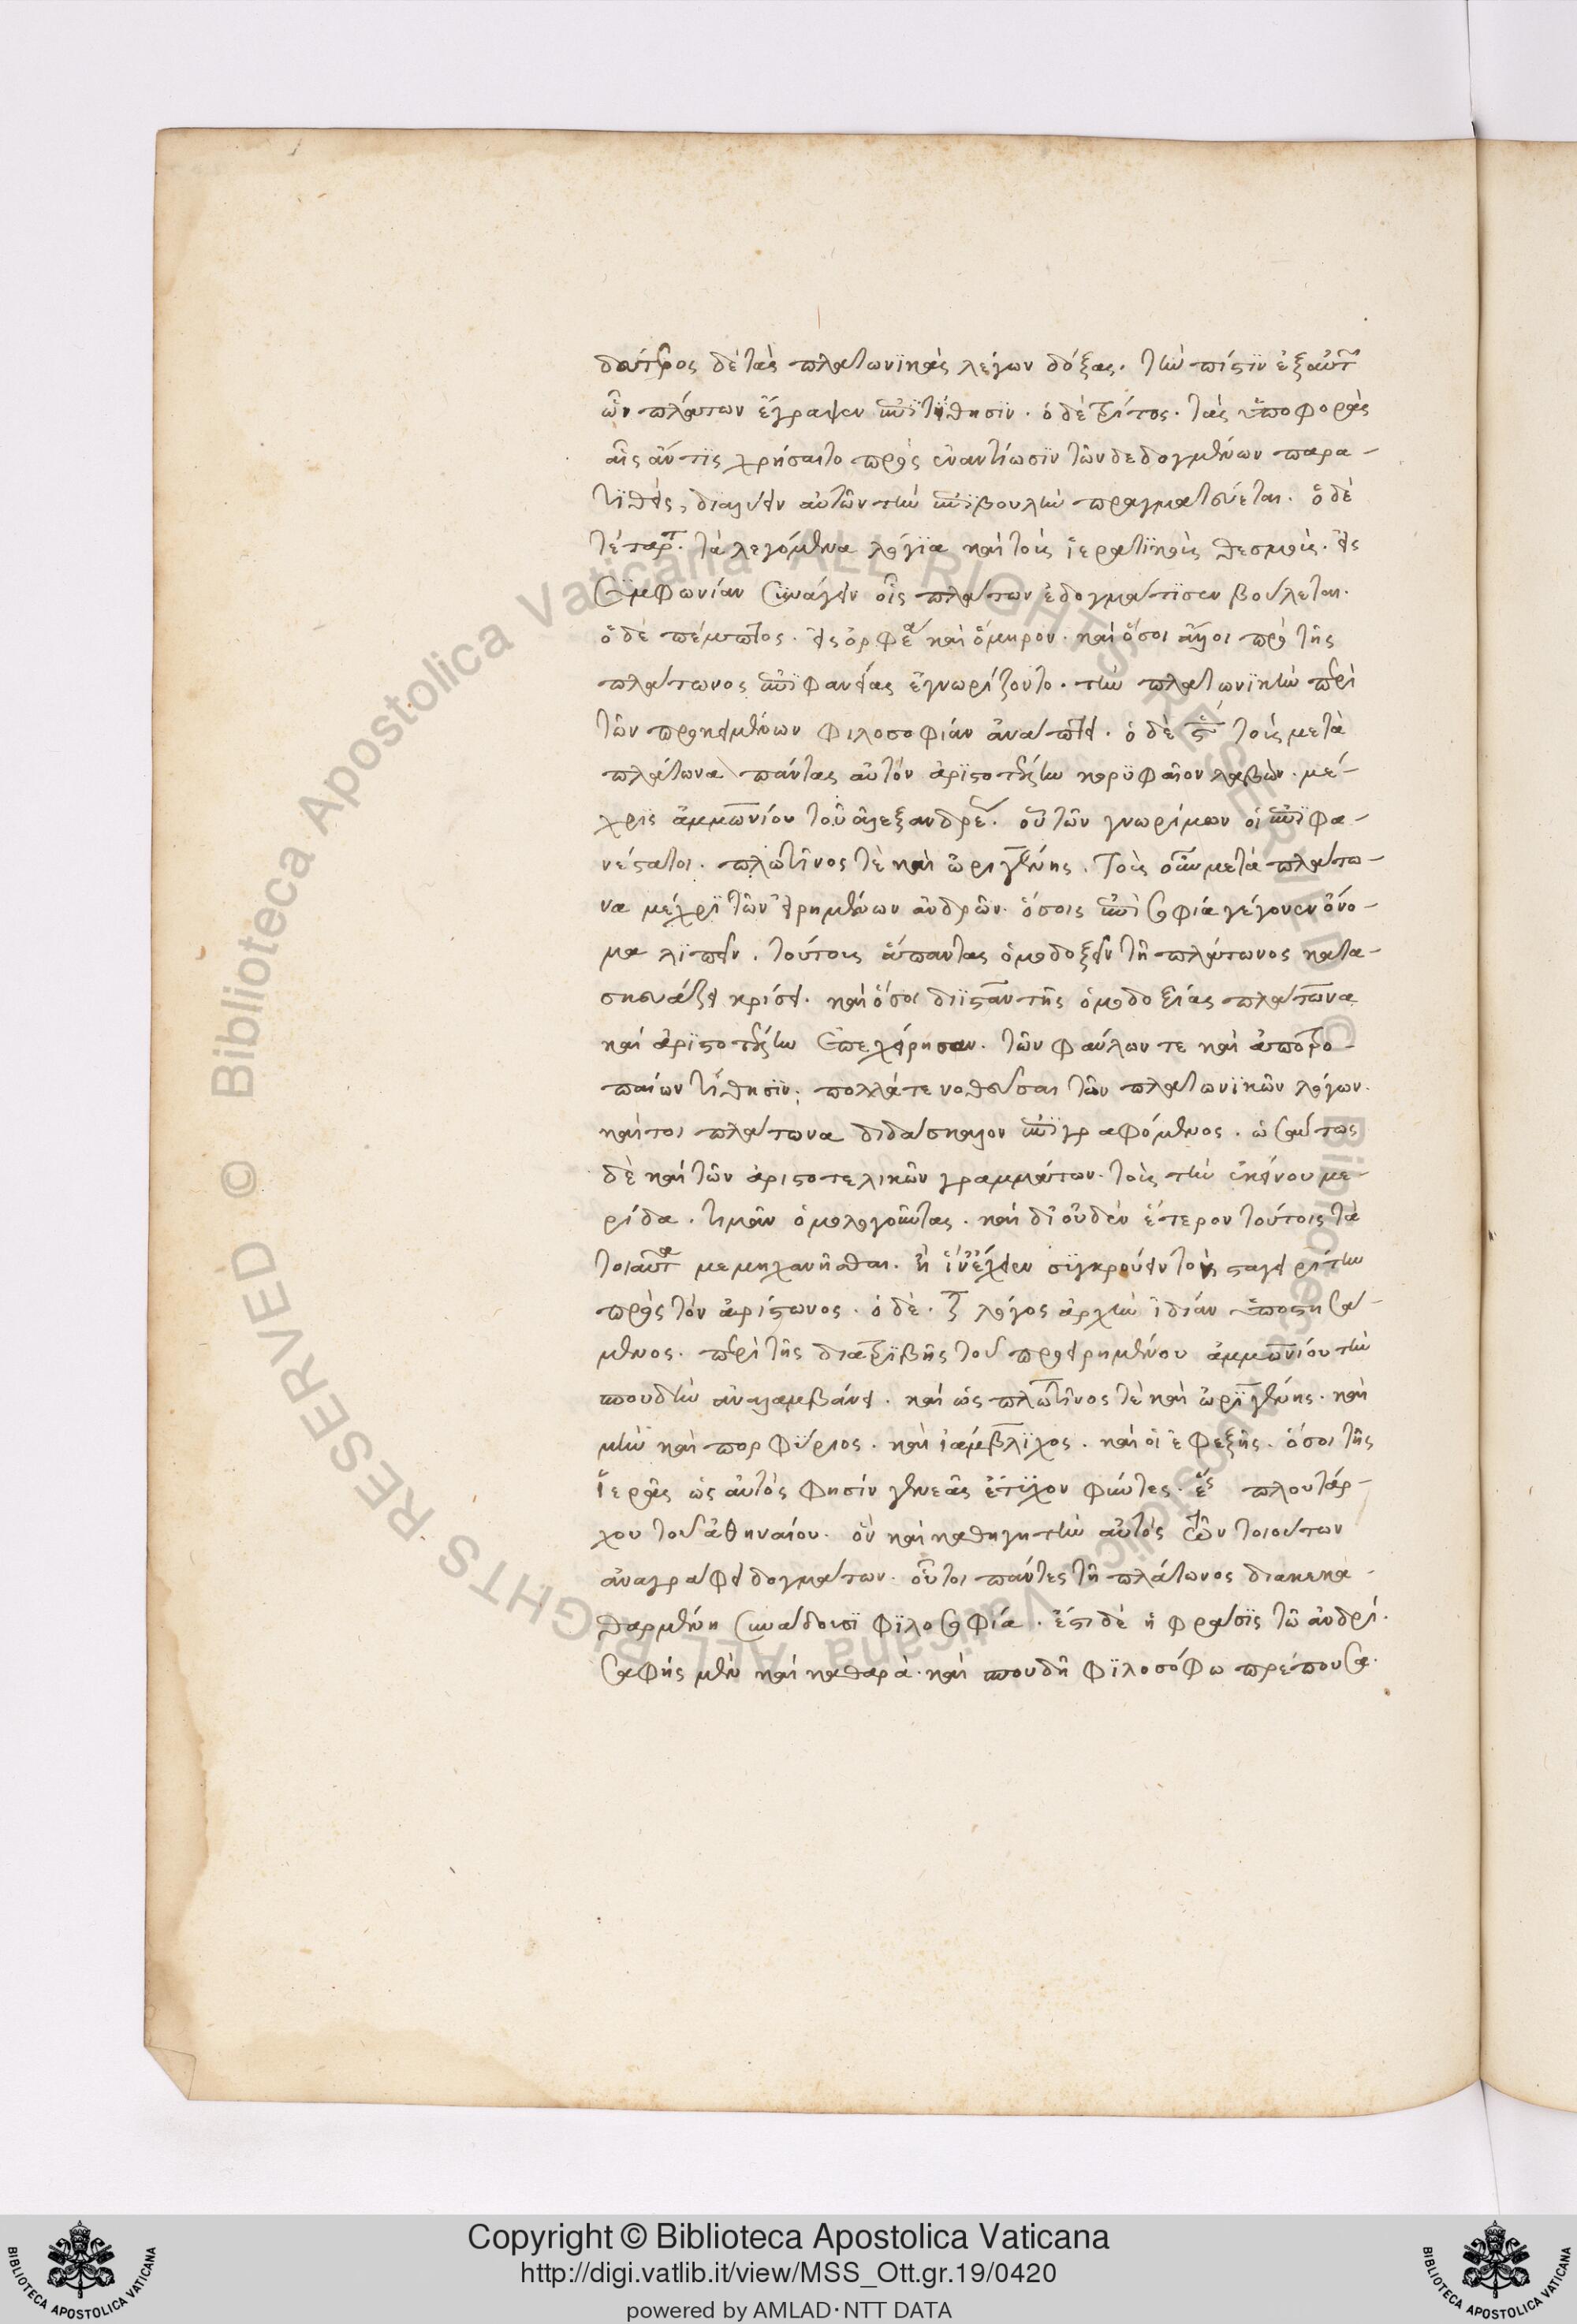 δεύτερος δὲ τὰς πλατωνϊκὰς λέγων δόξας. τὴν πίστϊν ἐξ αὐτῶν
ὧν πλάτων ἔγραψεν ἐπϊτίθησϊν. ὁ δὲ τρίτος. τὰς ὑποφορὰς
αἷς ἄν τϊς χρήσαιτο πρὸς ἐναντίωσϊν τῶν δεδογμένων παρα-
τϊθεὶς, διαλύειν αὐτῶν τὴν ἐπϊβουλὴν πραγματεύεται. ὁ δὲ
τέταρτος. τὰ λεγόμενα λόγϊα καὶ τοὺς ἱερατϊκοὺς θεσμοὺς. εἰς
συμφωνίαν συνάγειν οἷς πλάτων ἐδογμάτϊσεν βούλεται.
ὁ δὲ πέμπτος. εἰς ὀρφέα καὶ ὅμηρον. καὶ ὅσοι ἄλλοι πρὸ τῆς
πλάτωνος ἐπϊφανείας ἐγνωρίζοντο. τὴν πλατωνϊκὴν περὶ
τῶν προκειμένων φιλοσοφίαν ἀνάπτει. ὁ δὲ ϛ τοὺς μετὰ
πλάτωνα πάντας αὐτὸν ἀρϊστοτέλην κορϋφαῖον λαβὼν. μέ-
χρϊς ἀμμωνίου τοῦ ἀλεξανδρέως. οὗ τῶν γνωρίμων οἱ ἐπϊφα-
νέστατοι. πλωτῖνος τὲ καὶ ὠριγένης. τοὺς οὖν μετὰ πλάτω-
να μέχρϊ τῶν εἰρημένων ἀνδρῶν. ὅσοις ἐπὶ σοφία γέγονεν ὄνο-
μα λϊπεῖν. τούτους ἅπαντας ὁμοδοξεῖν τῆ πλάτωνος κατα-
σκευάζει κρίσει. καὶ ὅσοι διϊστᾶν τῆς ὁμοδοξίας πλάτωνα
καὶ ἀρϊστοτέλην ἐπεχείρησαν. τῶν φαύλων τε καὶ ἀποτρο-
παίων τίθησϊν. πολλά τε νοθεῦσαι τῶν πλατωνϊκῶν λόγων.
καίτοι πλάτωνα διδάσκαλον ἐπϊγραφόμενος. ὡσαύτως
δὲ καὶ τῶν ἀριστοτελικῶν γραμμάτων. τοὺς τὴν ἐκείνου με-
ρίδα. τιμᾶν ὁμολογοῦντας. καὶ δι' οὐδὲν ἕτερον τούτοις τὰ
τοιαῦτα μεμηχανῆσθαι. ἢ ἵν' ἔχϊεν συγκρούειν τὸν σταγειρίτην
πρὸς τὸν ἀρίστωνος. ὁ δὲ. ζ λόγος ἀρχὴν ἰδίαν ὑποστησά-
μενος. περὶ τῆς διατρϊβῆς τοῦ προειρημένου ἀμμωνίου τὴν
σπουδὴν ἀναλαμβάνει. καὶ ὡς πλωτῖνος τὲ καὶ ὠρϊγένης. καὶ
μὴν καὶ πορφύριος. καὶ ἰάμβλϊχος. καὶ οἱ ἐφεξῆς. ὅσοι τῆς
ἱερᾶς ὡς αὐτὸς φησὶν γενεᾶς ἔτυχον φύντες. ἕως πλουτάρ-
χου τοῦ ἀθηναίου. ὃν καὶ καθηγητὴν αὐτὸς τῶν τοιούτων
ἀναγράφει δογμάτων. οὗτοι πάντες τῆ πλάτωνος διακεκα-
θαρμένη συνάδουσϊ φϊλοσοφία. ἔστι δὲ ἡ φράσϊς τῶ ἀνδρὶ.
σαφὴς μὲν καὶ καθαρὰ. καὶ σπουδῆ φϊλοσόφω πρέπουσα.
Copyright © Biblioteca Apostolica Vaticana
http://digi.vatlib.it/view/MSS_Ott.gr.19/0420
powered by AMLAD·NTT DATA
BIBLIOTECA APOSTOLICA VATICANA
BIBLIOTECA APOSTOLICA VATICANA
Biblioteca Apostolica Vaticana ALL RIGHTS RESERVED ©
Biblioteca Apostolica Vaticana ALL RIGHTS RESERVED ©